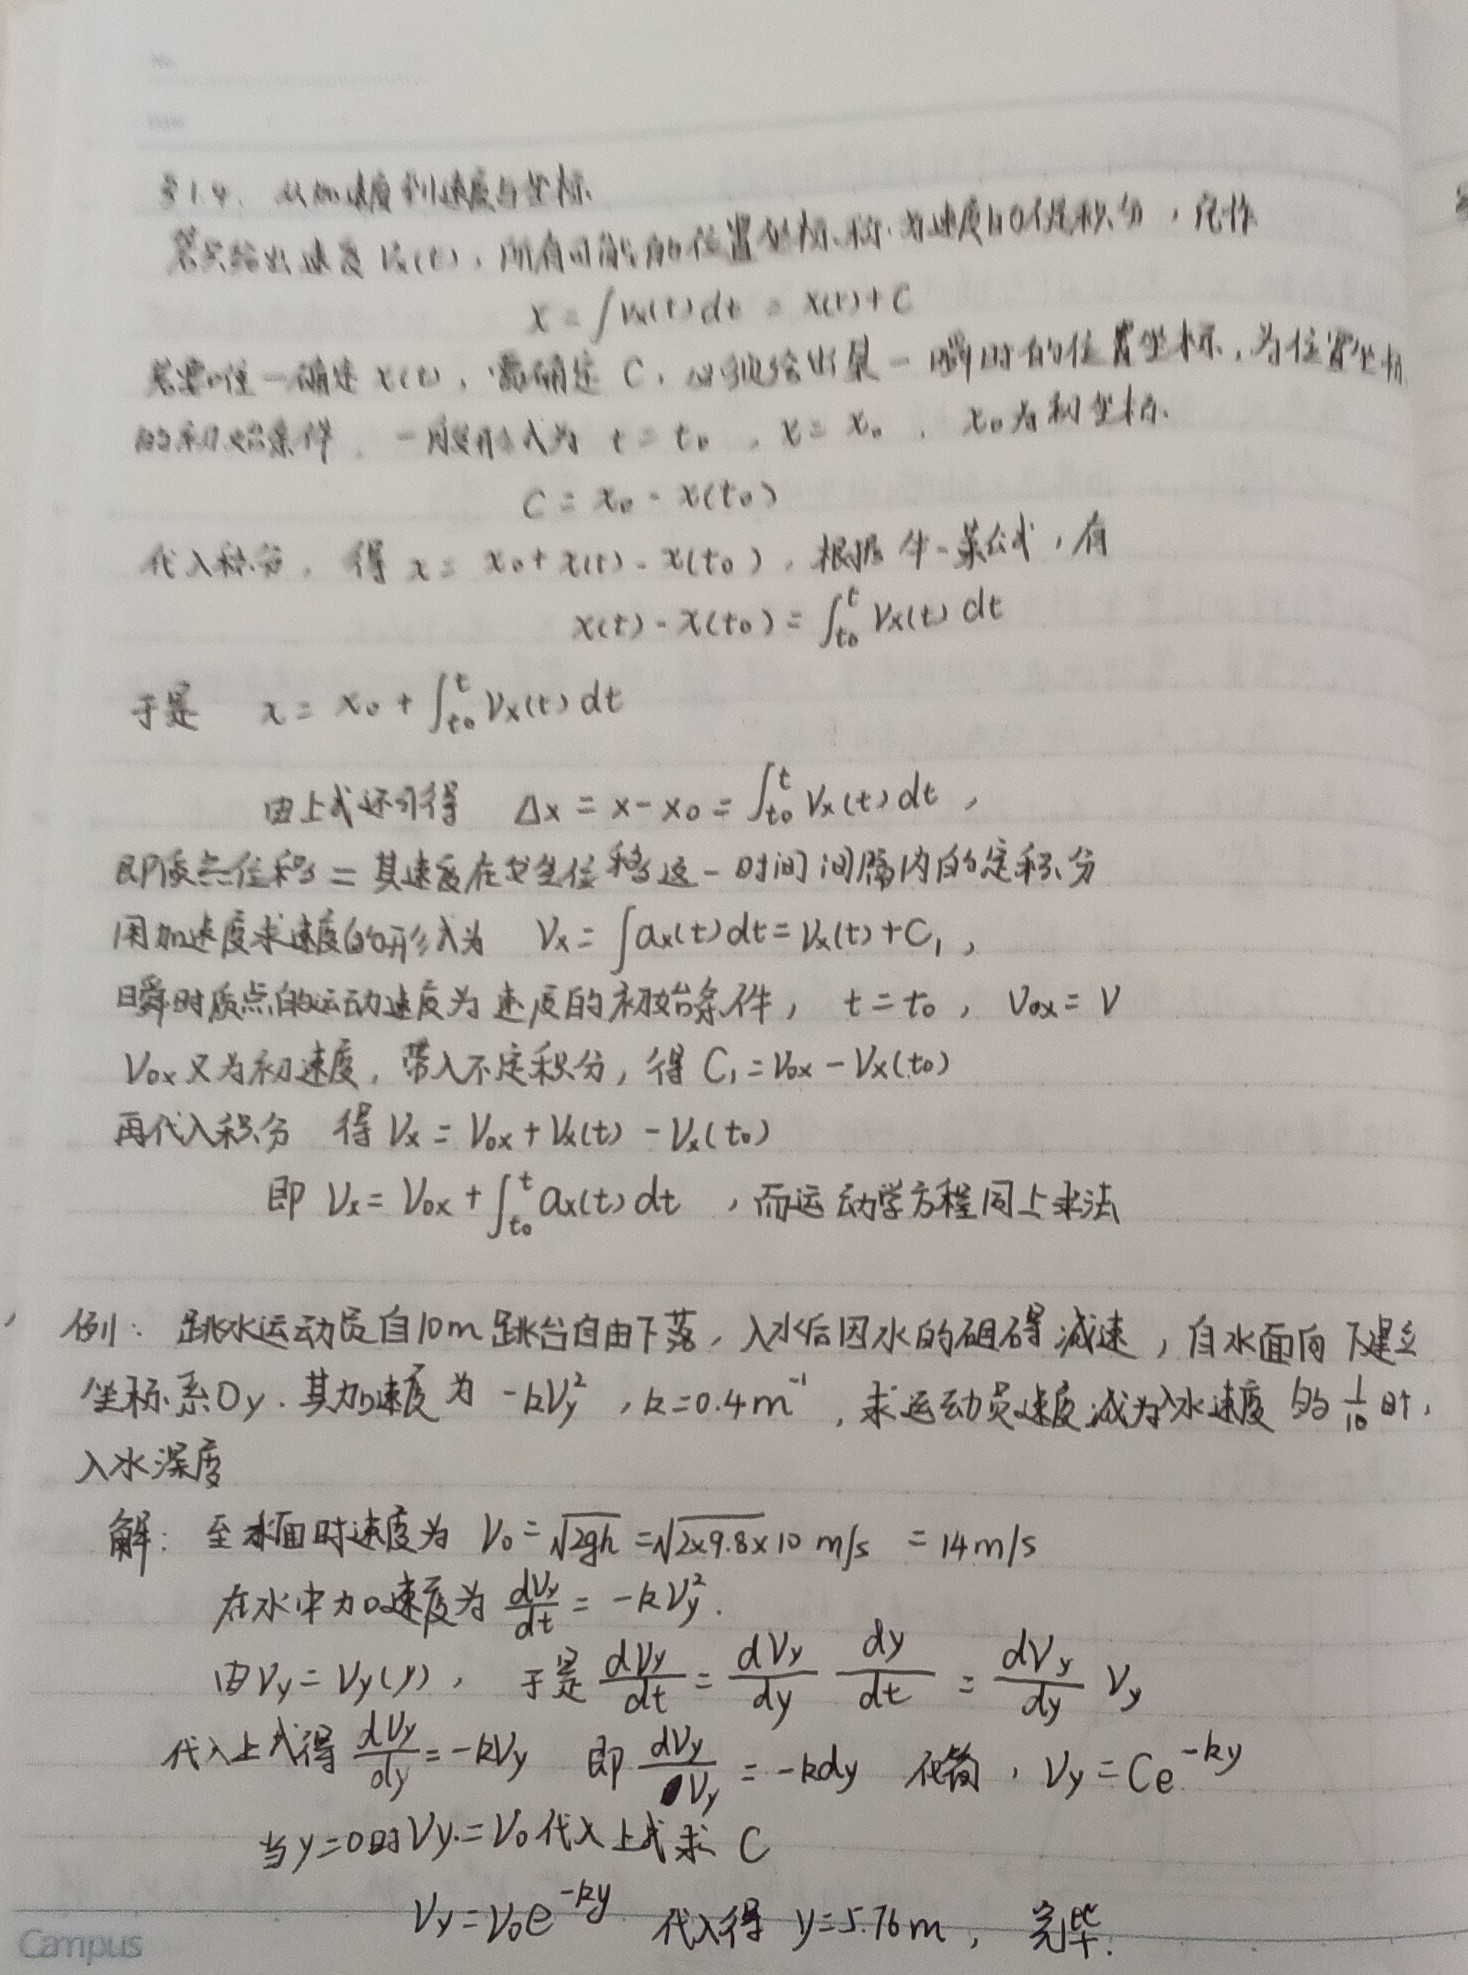 §1.4. 从加速度到速度与坐标
若只给出速度 Vx(t)，所有可能的位置坐标称为速度的不定积分，记作
x = ∫Vx(t)dt = x(t)+C
若要唯一确定 x(t)，需确定 C，必须给出某一瞬时的位置坐标，为位置坐标
的初始条件，一般形式为 t = t₀，x = x₀，x₀为初坐标.
C = x₀ - x(t₀)
代入积分，得 x = x₀ + x(t) - x(t₀)，根据牛-莱公式，有
x(t) - x(t₀) = ∫_{t₀}^{t} Vx(t) dt
于是 x = x₀ + ∫_{t₀}^{t} Vx(t) dt
由上式还可得 Δx = x - x₀ = ∫_{t₀}^{t} Vx(t) dt，
即质点位移 = 其速度在发生位移这一时间间隔内的定积分
用加速度求速度的形式为 Vx = ∫ax(t)dt = Vx(t)+C₁，
瞬时质点的运动速度为速度的初始条件，t = t₀，V₀x = V
V₀x又为初速度，带入不定积分，得 C₁ = V₀x - Vx(t₀)
再代入积分 得 Vx = V₀x + Vx(t) - Vx(t₀)
即 Vx = V₀x + ∫_{t₀}^{t} ax(t) dt，而运动学方程同上求法
例：跳水运动员自10m跳台自由下落，入水后因水的阻碍减速，自水面向下建立
坐标系Oy. 其加速度为 -kVy²，k=0.4m⁻¹，求运动员速度减为入水速度的 1/10 时，
入水深度
解：至水面时速度为 V₀ = √2gh = √2×9.8×10 m/s = 14m/s
在水中加速度为 dVy/dt = -kVy².
由Vy = Vy(y)，于是 dVy/dt = dVy/dy dy/dt = dVy/dy Vy
代入上式得 dVy/dy = -kVy 即 dVy/Vy = -kdy 化简，Vy = Ce^{-ky}
当y=0时Vy=V₀代入上式求 C
Vy = V₀e^{-ky} 代入得 y=5.76m，完毕.
Campus